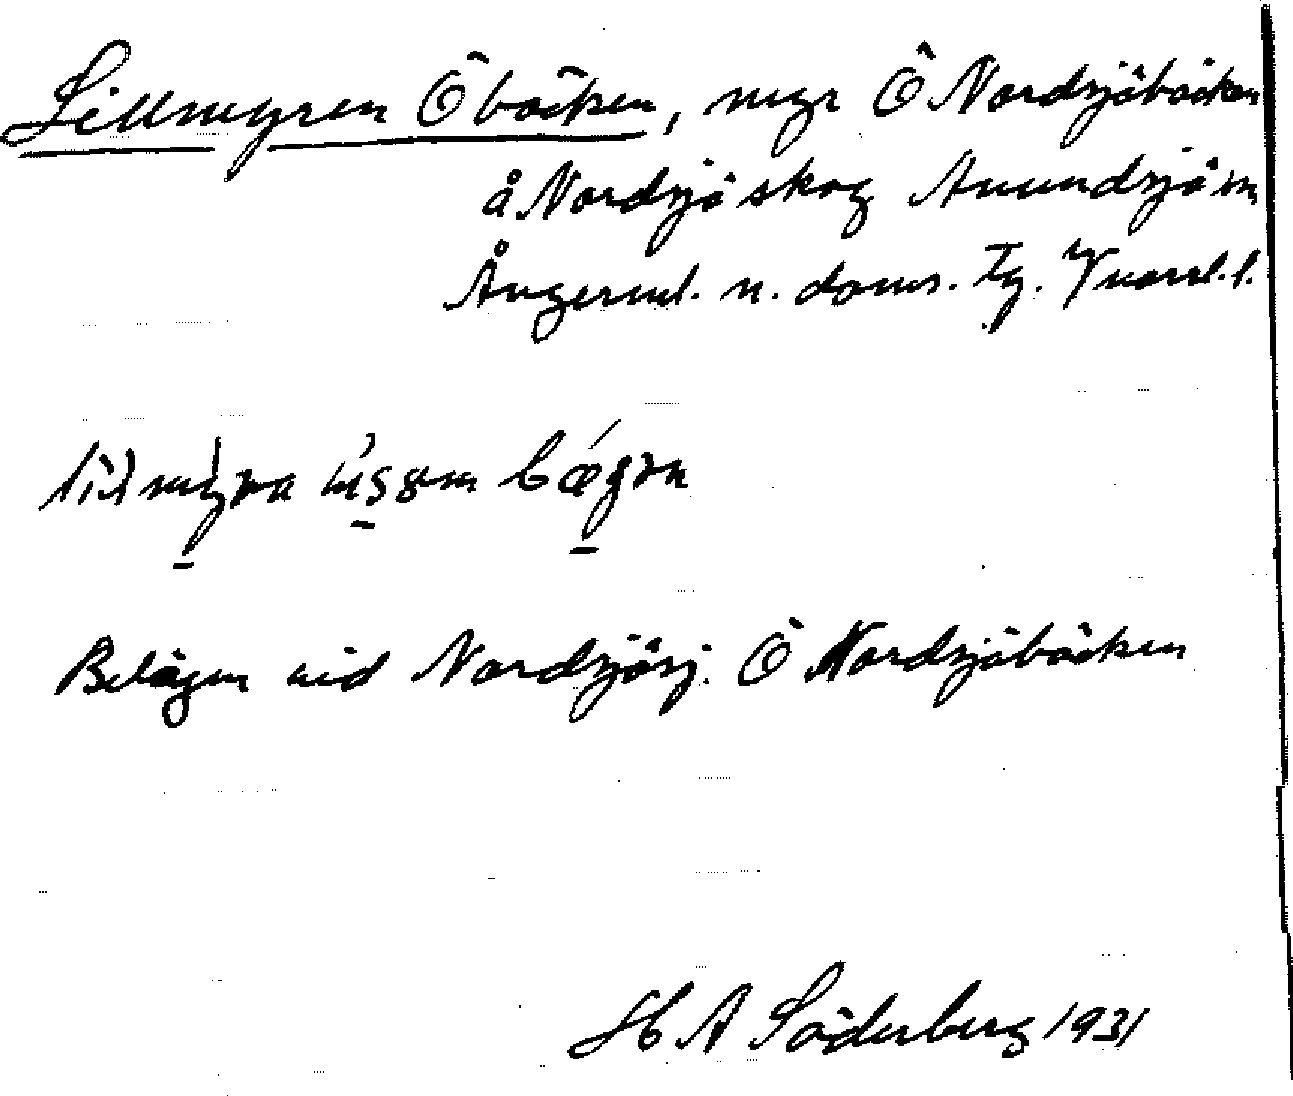 Lillmyren Ö bäcken, myr Ö Nordsjöbäcken
å Nordsjö skog Anundsjö sn
Ångerml. n. doms. Tg. Västerl. l.
Belägen vid Nordsjösj. Ö Nordsjöbäcken
H A Söderberg 1931